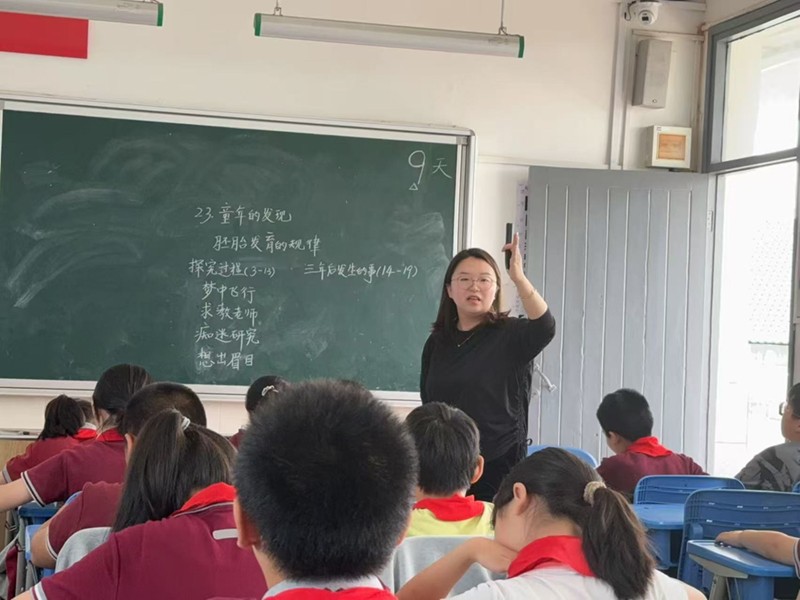 9天
23.童年的发现
胚胎发育的规律
探究过程(3-13) 三年后发生的事(14-19)
梦中飞行
求教老师
痴迷研究
想出眉目